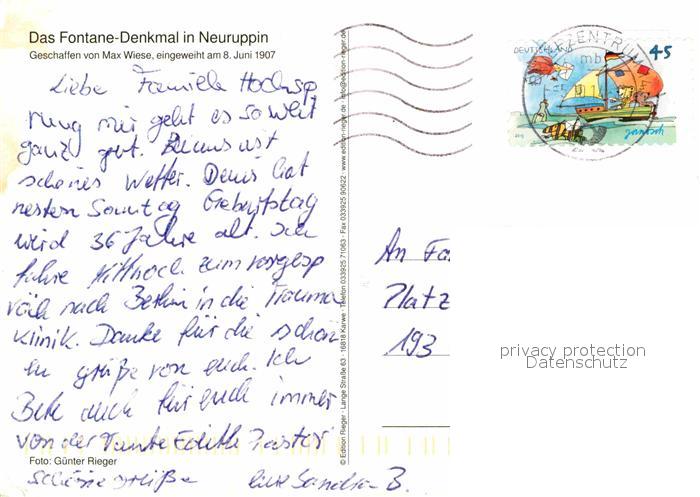 Das Fontane-Denkmal in Neuruppin
Geschaffen von Max Wiese, eingeweiht am 8. Juni 1907
Liebe Famiele Hochsp
rung mir geht es so weit
ganz gut. Bei uns ist
schönes Wetter. Denis hat
nestern Sonntag Geburtstag
wird 36 Jahre alt. Ich
fahre Mittwoch zum vorgesp
räch nach Berlin in die Trauma
Klinik. Danke für die schön
en grüße von euch. Ich
Bete auch für euch immer
von der Tante Edith
Foto: Günter Rieger
schöne grüße eure Sandra B.
© Edition Rieger · Lange Straße 63 · 16818 Karwe · Telefon 033925 71063 · Fax 033925 90622 · www.edition-rieger.de · info@edition-rieger.de
DEUTSCHLAND 45
janosch
ZENTRUM
An Fa
Platz
193
privacy protection
Datenschutz